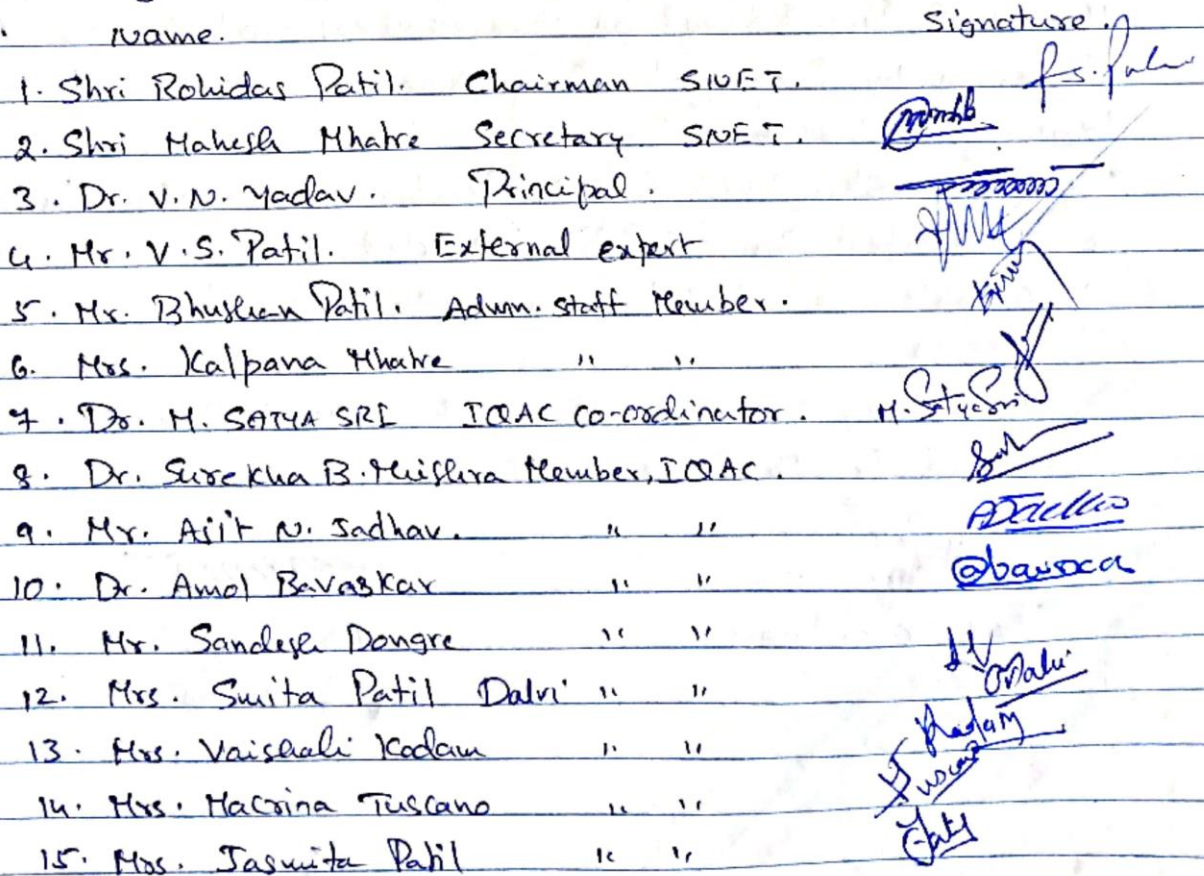 Name. Signature.
1. Shri Rohidas Patil. Chairman SNET.
2. Shri Mahesh Mhatre Secretary SNET.
3. Dr. V. N. Yadav. Principal.
4. Mr. V. S. Patil. External expert
5. Mr. Bhushan Patil. Admn. Staff Member.
6. Mrs. Kalpana Mhatre " "
7. Dr. M. SATYA SRI IQAC Co-ordinator. M. SatyaSri
8. Dr. Surekha B. Mishra Member, IQAC.
9. Mr. Ajit N. Jadhav. " "
10. Dr. Amol Bavaskar " "
11. Mr. Sandesh Dongre " "
12. Mrs. Smita Patil Dalvi " "
13. Mrs. Vaishali Kadam " " Kadam
14. Mrs. Macrina Tuscano " " Tuscano
15. Mrs. Jasmita Patil " "